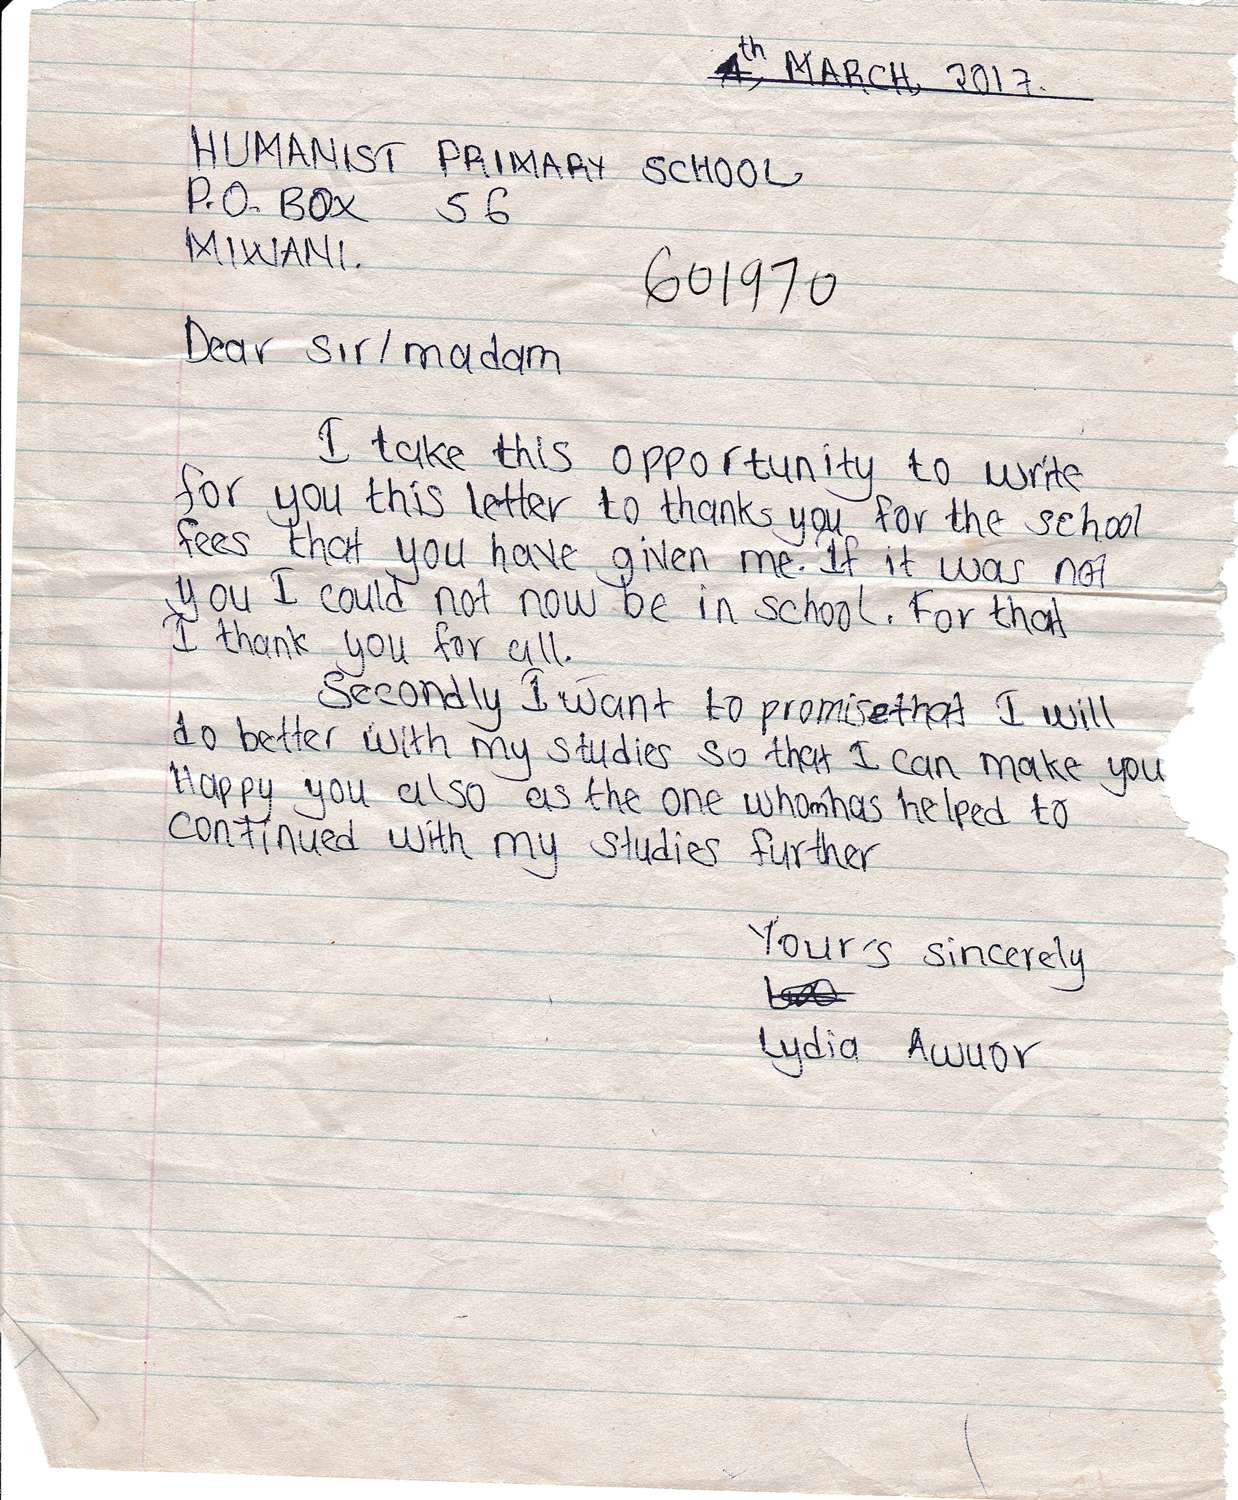 4th, MARCH, 2017.
HUMANIST PRIMARY SCHOOL
P.O. BOX 56
MIWANI.
601970
Dear Sir/madam
I take this opportunity to write
for you this letter to thanks you for the school
fees that you have given me. If it was not
you I could not now be in school. For that
I thank you for all.
Secondly I want to promise that I will
do better with my studies so that I can make you
Happy you also as the one whom has helped to
continued with my studies further
Your's sincerely
Lydia Awuor